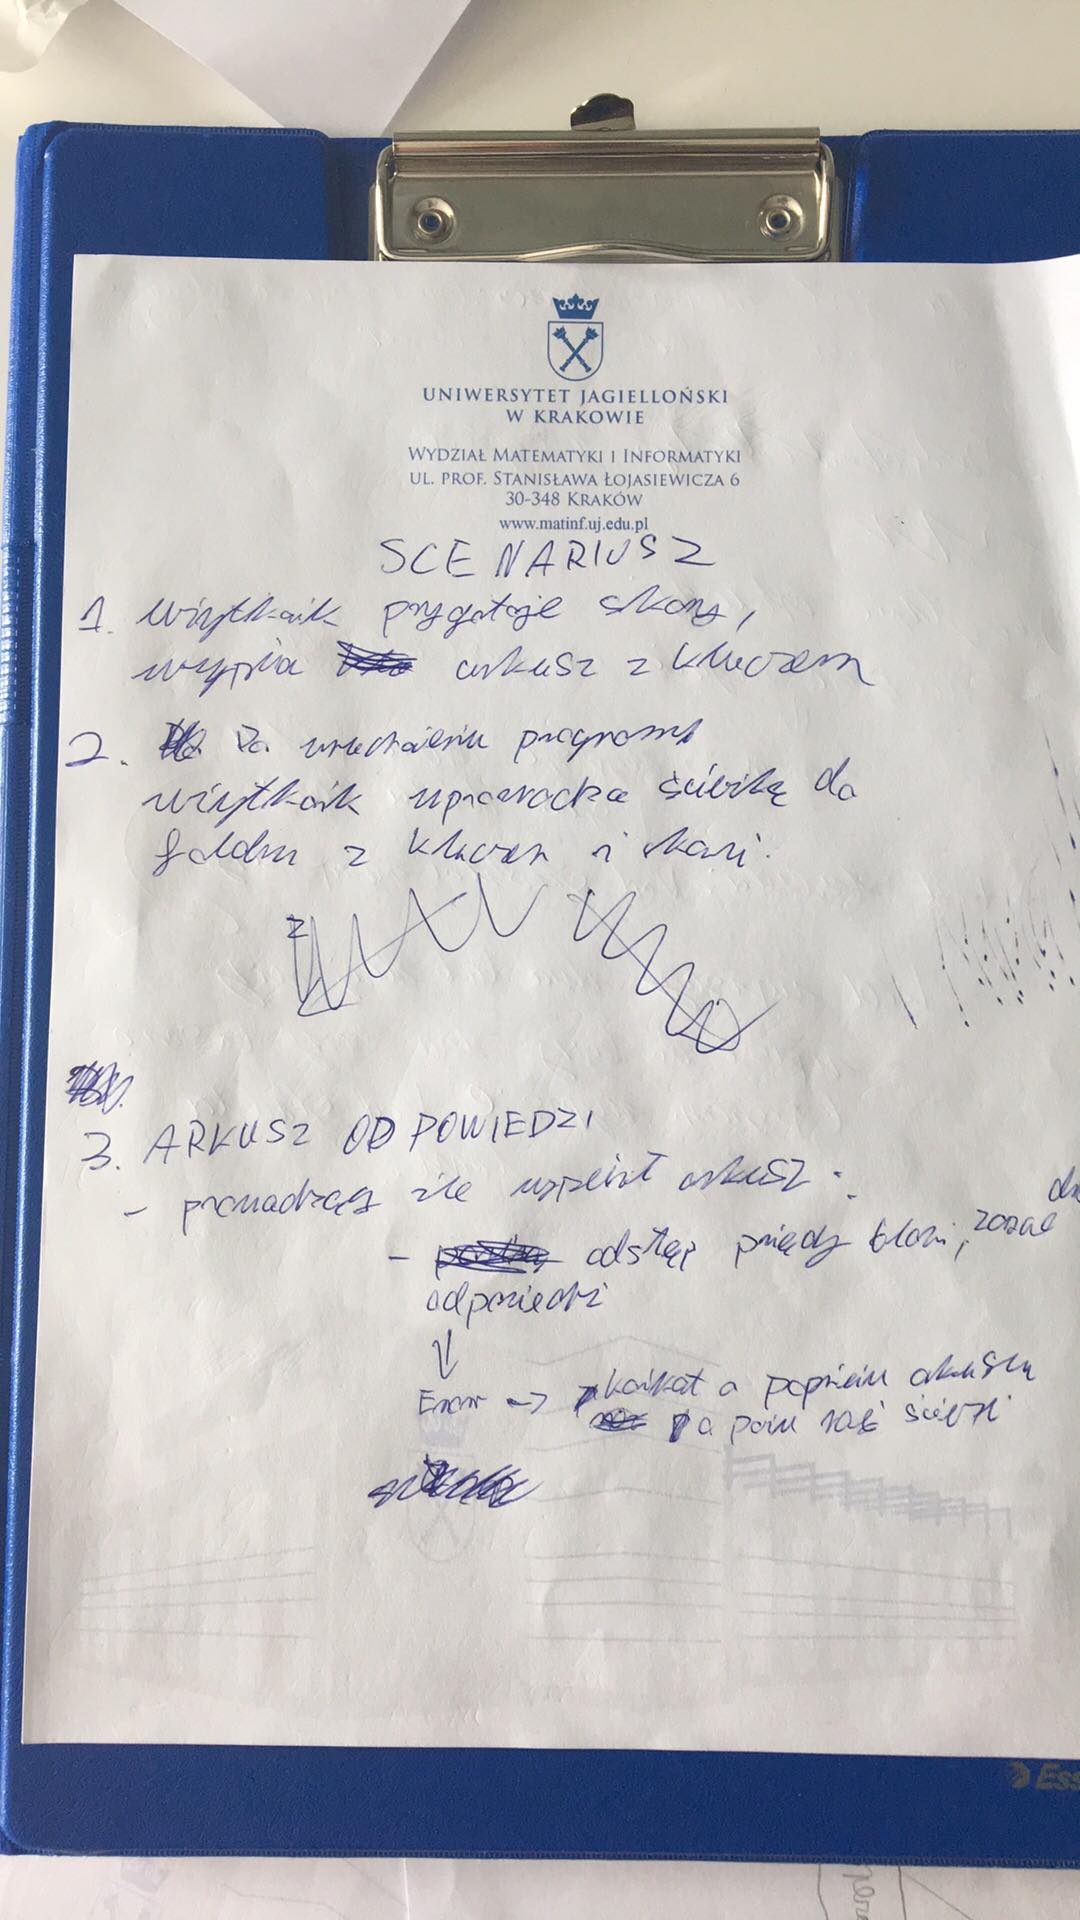 UNIWERSYTET JAGIELLOŃSKI
W KRAKOWIE
WYDZIAŁ MATEMATYKI I INFORMATYKI
UL. PROF. STANISŁAWA ŁOJASIEWICZA 6
30-348 KRAKÓW
www.matinf.uj.edu.pl
SCENARIUSZ
1. użytkownik przygotuje skany,
wypełnia arkusz z kluczem
2. Po uruchomieniu programu
użytkownik wprowadza ścieżkę do
folderu z kluczem i skani.
3. ARKUSZ ODPOWIEDZI
- prowadzący źle wypełnił arkusz:
- odstęp między
odpowiedzi
Error -> komunikat o